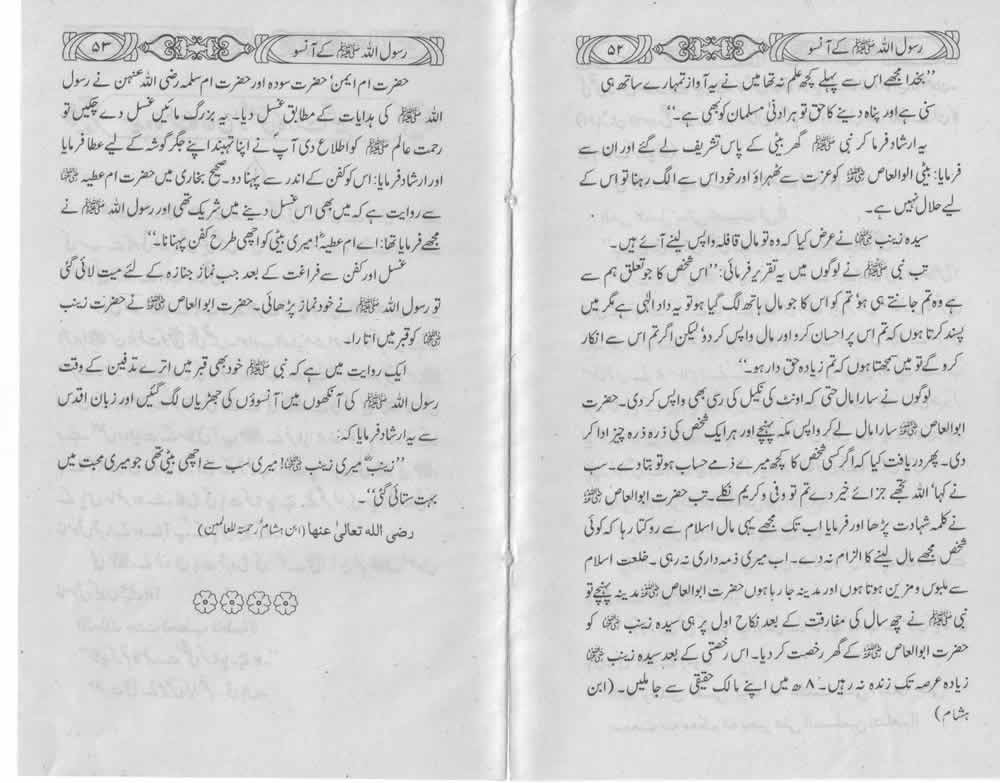 رسول اللہ ﷺ کے آنسو
۵۲
’’بخدا مجھے اس سے پہلے کچھ علم نہ تھا میں نے یہ آواز تمہارے ساتھ ہی
سنی ہے اور پناہ دینے کا حق تو ہر ادنیٰ مسلمان کو بھی ہے۔‘‘
یہ ارشاد فرما کر نبی ﷺ گھر بیٹی کے پاس تشریف لے گئے اور ان سے
فرمایا: بیٹی ابوالعاص ؓ کو عزت سے ٹھہراؤ اور خود اس سے الگ رہنا تو اس کے
لیے حلال نہیں ہے۔
سیدہ زینب ؓ نے عرض کیا کہ وہ تو مال قافلہ واپس لینے آئے ہیں۔
تب نبی ﷺ نے لوگوں میں یہ تقریر فرمائی: ’’اس شخص کا جو تعلق ہم سے
ہے وہ تم جانتے ہی ہو‘ تم کو اس کا جو مال ہاتھ لگ گیا ہو تو یہ داد الٰہی ہے مگر میں
پسند کرتا ہوں کہ تم اس پر احسان کرو اور مال واپس کر دو‘ لیکن اگر تم اس سے انکار
کرو گے تو میں سمجھتا ہوں کہ تم زیادہ حق دار ہو۔‘‘
لوگوں نے سارا مال حتی کہ اونٹ کی نکیل کی رسی بھی واپس کر دی۔ حضرت
ابوالعاص ؓ سارا مال لے کر واپس مکہ پہنچے اور ہر ایک شخص کی ذرہ ذرہ چیز ادا کر
دی۔ پھر دریافت کیا کہ اگر کسی شخص کا کچھ میرے ذمے حساب ہو تو بتا دے۔ سب
نے کہا‘ اللہ تجھے جزائے خیر دے تم تو وفی و کریم نکلے۔ تب حضرت ابوالعاص ؓ
نے کلمہ شہادت پڑھا اور فرمایا اب تک مجھے یہی مال اسلام سے روکتا رہا کہ کوئی
شخص مجھے مال لینے کا الزام نہ دے۔ اب میری ذمہ داری نہ رہی۔ خلعت اسلام
سے ملبوس و مزین ہوتا ہوں اور مدینہ جا رہا ہوں حضرت ابوالعاص ؓ مدینہ پہنچے تو
نبی ﷺ نے چھ سال کی مفارقت کے بعد نکاح اول پر ہی سیدہ زینب ؓ کو
حضرت ابوالعاص ؓ کے گھر رخصت کر دیا۔ اس رخصتی کے بعد سیدہ زینب ؓ
زیادہ عرصہ تک زندہ نہ رہیں۔ ۸ھ میں اپنے مالک حقیقی سے جا ملیں۔ (ابن
ہشام)
رسول اللہ ﷺ کے آنسو
۵۳
حضرت ام ایمن‘ حضرت سودہ اور حضرت ام سلمہ رضی اللہ عنہن نے رسول
اللہ ﷺ کی ہدایات کے مطابق غسل دیا۔ یہ بزرگ مائیں غسل دے چکیں تو
رحمت عالم ﷺ کو اطلاع دی آپ نے اپنا تہبند اپنے جگر گوشہ کے لیے عطا فرمایا
اور ارشاد فرمایا: اس کو کفن کے اندر سے پہنا دو۔ صحیح بخاری میں حضرت ام عطیہ ؓ
سے روایت ہے کہ میں بھی اس غسل دینے میں شریک تھی اور رسول اللہ ﷺ نے
مجھے فرمایا تھا: اے ام عطیہؓ! میری بیٹی کو اچھی طرح کفن پہنانا۔‘‘
غسل اور کفن سے فراغت کے بعد جب نماز جنازہ کے لئے میت لائی گئی
تو رسول اللہ ﷺ نے خود نماز پڑھائی۔ حضرت ابوالعاص ؓ نے حضرت زینب
ؓ کو قبر میں اتارا۔
ایک روایت میں ہے کہ نبی ﷺ خود بھی قبر میں اترے تدفین کے وقت
رسول اللہ ﷺ کی آنکھوں میں آنسوؤں کی جھڑیاں لگ گئیں اور زبان اقدس
سے یہ ارشاد فرمایا کہ:
’’زینبؓ میری زینب ؓ! میری سب سے اچھی بیٹی تھی جو میری محبت میں
بہت ستائی گئی‘‘۔
رضی الله تعالیٰ عنها (ابن ہشام‘ رحمۃ للعالمین)